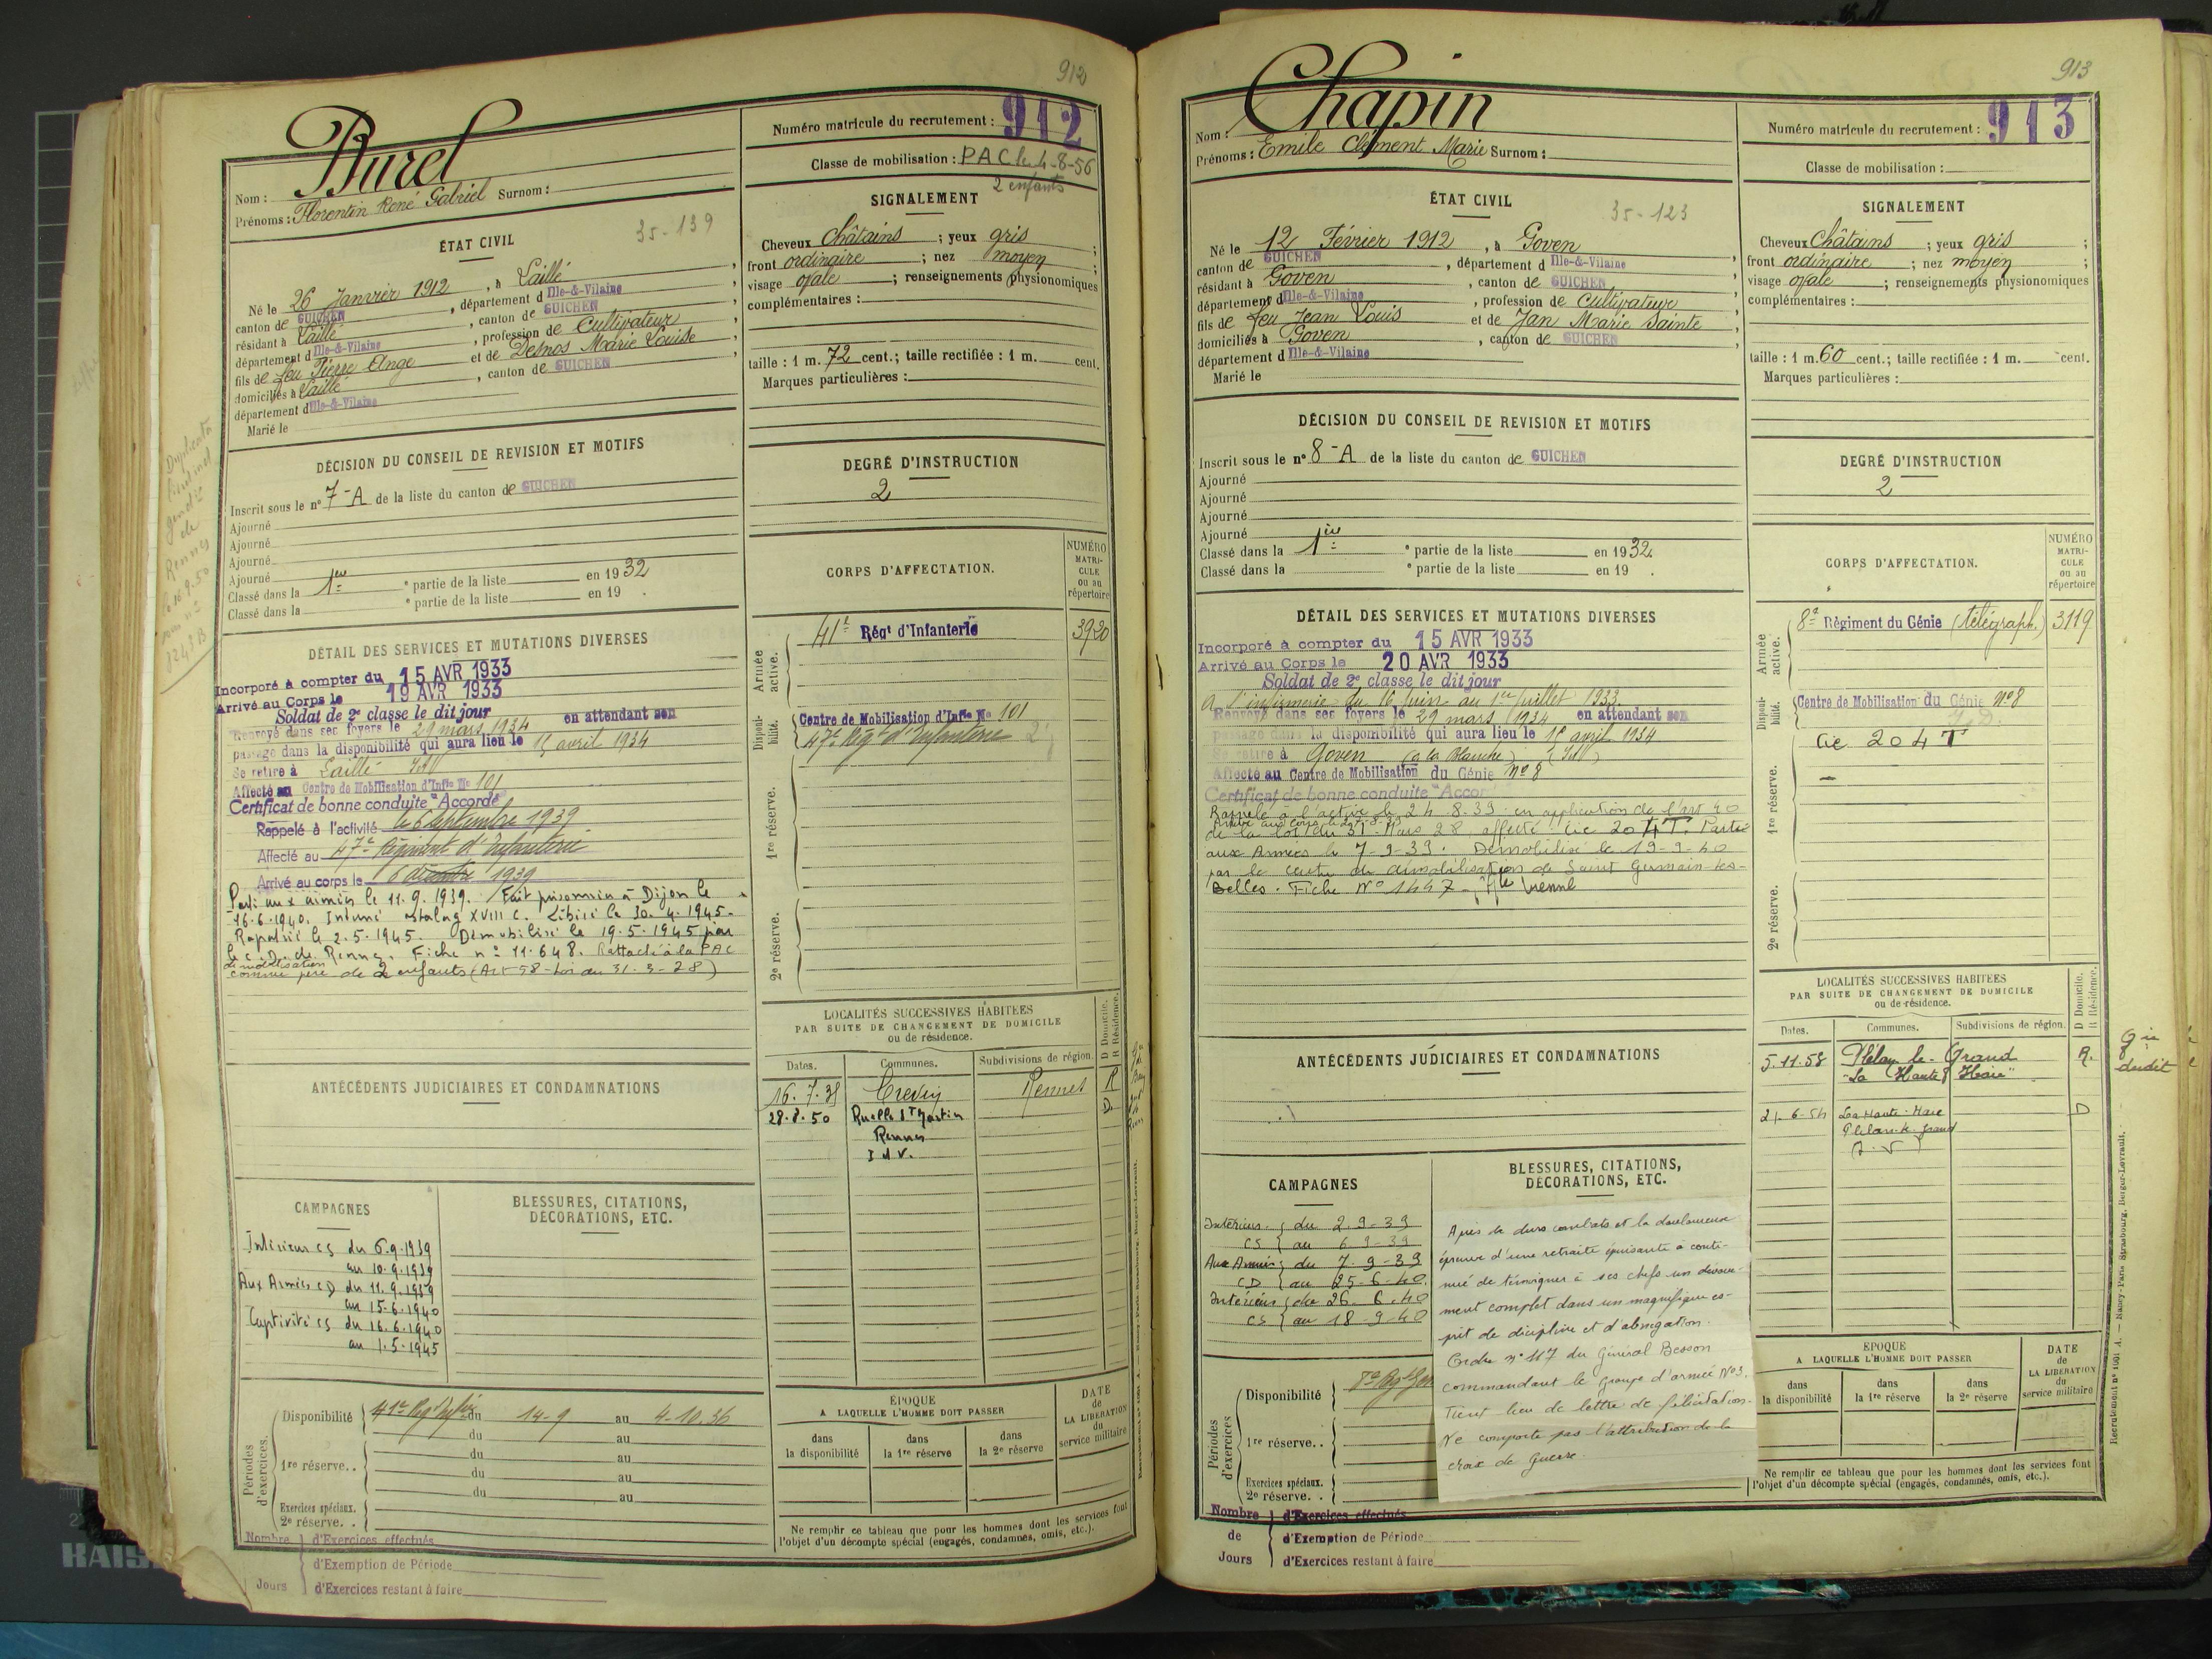 912
Burel
Nom :
Prénoms : Florentin René Gabriel Surnom :
Numéro matricule du recrutement : 912
Classe de mobilisation : PAC le 4-8-56
2 enfants
ÉTAT CIVIL
35-139
Né le 26 Janvier 1912, à Laillé,
canton de GUICHEN, département d Ille-&-Vilaine
résidant à Laillé, canton de GUICHEN,
département d Ille-&-Vilaine, profession de Cultivateur
fils de feu Pierre Ange et de Desnos Marie Louise,
domiciliés à Laillé, canton de GUICHEN
département d Ille-&-Vilaine
Marié le
SIGNALEMENT
Cheveux Châtains ; yeux gris ;
front ordinaire ; nez moyen ;
visage ovale ; renseignements physionomiques
complémentaires :
taille : 1 m. 72 cent.; taille rectifiée : 1 m. cent.
Marques particulières :
DÉCISION DU CONSEIL DE REVISION ET MOTIFS
Inscrit sous le n° 7-A de la liste du canton de GUICHEN
Ajourné
Ajourné
Ajourné
Ajourné
Classé dans la 1ère e partie de la liste en 1932
Classé dans la e partie de la liste en 19 .
DEGRÉ D'INSTRUCTION
2
Duplicata
gend ie
de
Rennes
le 16.9.50
1243 B
DÉTAIL DES SERVICES ET MUTATIONS DIVERSES
Incorporé à compter du 15 AVR 1933
Arrivé au Corps le 19 AVR 1933
Soldat de 2e classe le dit jour
Renvoyé dans ses foyers le 29 mars 1934 en attendant son
passage dans la disponibilité qui aura lieu le 15 avril 1934
Se retire à Laillé IetV
Affecté au Centre de Mobilisation d'Infie No 101
Certificat de bonne conduite "Accordé"
Rappelé à l'activité le 6 septembre 1939
Affecté au 47e Régiment d'Infanterie
Arrivé au corps le 6 décembre 1939
Parti aux armées le 11.9.1939. Fait prisonnier à Dijon le
16.6.1940. Interné stalag XVIII C. Libéré le 30.4.1945.
Rapatrié le 2.5.1945. Démobilisé le 19.5.1945 par
le C.D. de Rennes. Fiche n° 11.648. Rattaché à la PAC
démobilisation
comme père de 2 enfants (Art 58-Loi du 31-3-28)
CORPS D'AFFECTATION.
NUMÉRO
MATRI-
CULE
ou au
répertoire
Armée
active.
41e Régt d'Infanterie 3920
Disponi-
bilité.
Centre de Mobilisation d'Infie No 101
47e Régt d'Infanterie
1re réserve.
2e réserve.
ANTÉCÉDENTS JUDICIAIRES ET CONDAMNATIONS
LOCALITÉS SUCCESSIVES HABITÉES
PAR SUITE DE CHANGEMENT DE DOMICILE
ou de résidence.
D Domicile.
R Résidence.
Dates. Communes. Subdivisions de région.
16.7.35 Crevin Rennes R
28.8.50 Ruelle St Martin D.
Rennes
I d V.
CAMPAGNES
Intérieur CS du 6.9.1939
au 10.9.1939
Aux Armées CD du 11.9.1939
au 15.6.1940
Captivité CS du 16.6.1940
au 1.5.1945
BLESSURES, CITATIONS,
DÉCORATIONS, ETC.
Périodes
d'exercices.
Disponibilité 41e Régt Infie du 14-9 au 4-10.36
du au
1re réserve.. du au
du au
du au
Exercices spéciaux.
2e réserve. .
Nombre d'Exercices effectués
d'Exemption de Période
Jours d'Exercices restant à faire
ÉPOQUE
A LAQUELLE L'HOMME DOIT PASSER
dans
la disponibilité
dans
la 1re réserve
dans
la 2e réserve
DATE
de
LA LIBÉRATION
du
service militaire
Ne remplir ce tableau que pour les hommes dont les services font
l'objet d'un décompte spécial (engagés, condamnés, omis, etc.).
913
Chapin
Nom :
Prénoms : Emile Clément Marie Surnom :
Numéro matricule du recrutement : 913
Classe de mobilisation :
ÉTAT CIVIL
35-123
Né le 12 Février 1912, à Goven
canton de GUICHEN, département d Ille-&-Vilaine,
résidant à Goven, canton de GUICHEN,
département d Ille-&-Vilaine, profession de Cultivateur,
fils de feu Jean Louis et de Jan Marie Sainte,
domiciliés à Goven, canton de GUICHEN,
département d Ille-&-Vilaine
Marié le
SIGNALEMENT
Cheveux Châtains ; yeux gris ;
front ordinaire ; nez moyen ;
visage ovale ; renseignements physionomiques
complémentaires :
taille : 1 m. 60 cent.; taille rectifiée : 1 m. cent.
Marques particulières :
DÉCISION DU CONSEIL DE REVISION ET MOTIFS
Inscrit sous le n° 8-A de la liste du canton de GUICHEN
Ajourné
Ajourné
Ajourné
Ajourné
Classé dans la 1ère e partie de la liste en 1932.
Classé dans la e partie de la liste en 19 .
DEGRÉ D'INSTRUCTION
2
DÉTAIL DES SERVICES ET MUTATIONS DIVERSES
Incorporé à compter du 15 AVR 1933
Arrivé au Corps le 20 AVR 1933
Soldat de 2e classe le dit jour
A l'infirmerie du 16 Juin au 1er Juillet 1933.
Renvoyé dans ses foyers le 29 mars 1934 en attendant son
passage dans la disponibilité qui aura lieu le 15 avril 1934
Se retire à Goven (à la Blanche) (IetV)
Affecté au Centre de Mobilisation du Génie No 8
Certificat de bonne conduite "Accor
Rappelé à l'active le 24.8.39 en application de l'art 40
Arrivé au corps le 27-8-39
de la loi du 31-Mars 28 affecté Cie 204T. Parti
aux Armées le 7-9-39. Démobilisé le 19-9-40
par le centre de démobilisation de Saint Germain-les-
Belles. Fiche No 1447 - Hte Vienne
CORPS D'AFFECTATION.
NUMÉRO
MATRI-
CULE
ou au
répertoire
Armée
active.
8e Régiment du Génie (télégraph.) 3119
Disponi-
bilité.
Centre de Mobilisation du Génie No 8
Cie 204 T
1re réserve.
2e réserve.
ANTÉCÉDENTS JUDICIAIRES ET CONDAMNATIONS
LOCALITÉS SUCCESSIVES HABITÉES
PAR SUITE DE CHANGEMENT DE DOMICILE
ou de résidence.
D Domicile.
R Résidence.
Dates. Communes. Subdivisions de région.
5.11.58 Plélan le-Grand R.
"La Haute Haie"
21-6-54 La Haute-Haie D
Plélan-le-Grand
I.V
CAMPAGNES
Intérieur du 2-9-39
CS au 6-9-39
Aux Armées du 7-9-39
CD au 25-6-40.
Intérieur du 26.6.40
CS au 18-9-40
BLESSURES, CITATIONS,
DÉCORATIONS, ETC.
Après de durs combats et la douloureuse
épreuve d'une retraite épuisante a conti-
nué de témoigner à ses chefs un dévoue-
ment complet dans un magnifique es-
prit de dicipline et d'abnegation.
Ordre n° 117 du Général Besson
commandant le groupe d'armée No 3.
Tient lieu de lettre de félicitation.
Ne comporte pas l'attribution de la
croix de Guerre.
Périodes
d'exercices
Disponibilité 8e Régt Gén
1re réserve..
Exercices spéciaux.
2e réserve. .
Nombre d'Exercices effectués
de d'Exemption de Période
Jours d'Exercices restant à faire
ÉPOQUE
A LAQUELLE L'HOMME DOIT PASSER
dans
la disponibilité
dans
la 1re réserve
dans
la 2e réserve
DATE
de
LA LIBÉRATION
du
service militaire
Ne remplir ce tableau que pour les hommes dont les services font
l'objet d'un décompte spécial (engagés, condamnés, omis, etc.).
Recrutement n° 1001 A. — Nancy-Paris Strasbourg, Berger-Levrault.